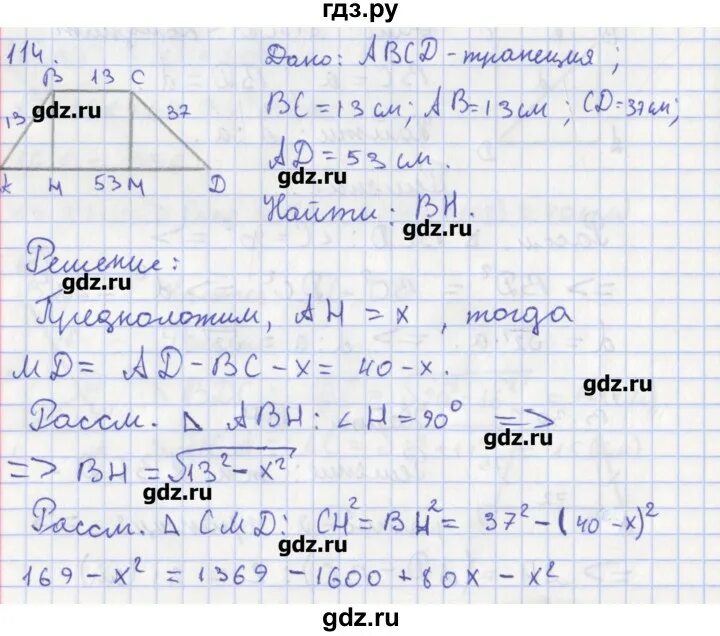 гдз.ру
114.
B 13 C
13
gdz.ru
37
H 53 M D
Дано: ABCD - трапеция;
BC = 13 см; AB = 13 см; CD = 37 см;
AD = 53 см.
gdz.ru
Найти: BH.
gdz.ru
Решение:
gdz.ru
Предположим, AH = x, тогда
MD = AD - BC - x = 40 - x.
gdz.ru
Рассм. △ ABH: ∠H = 90° =>
gdz.ru
=> BH = √13² - x²
gdz.ru
Рассм. △ CMD: CH² = BH² = 37² - (40 - x)²
gdz.ru
169 - x² = 1369 - 1600 + 80x - x²
gdz.ru